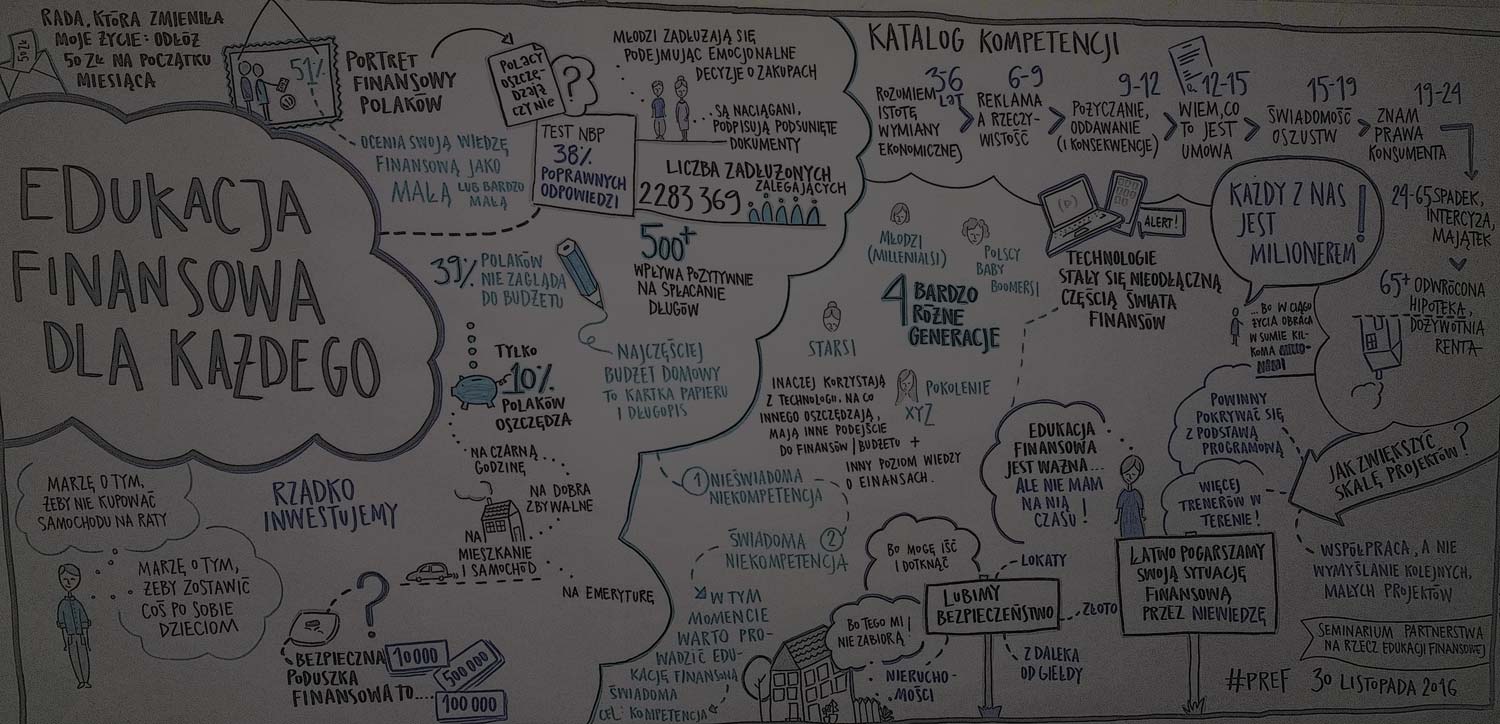 RADA, KTÓRA ZMIENIŁA
MOJE ŻYCIE: ODŁÓŻ
50 ZŁ NA POCZĄTKU
MIESIĄCA
50 ZŁ
EDUKACJA
FINANSOWA
DLA KAŻDEGO
51%
PORTRET
FINANSOWY
POLAKÓW
OCENIA SWOJĄ WIEDZĘ
FINANSOWĄ JAKO
MAŁĄ LUB BARDZO
MAŁĄ
POLACY
OSZCZĘ-
DZAJĄ
CZY NIE
?
TEST NBP
38%
POPRAWNYCH
ODPOWIEDZI
MŁODZI ZADŁUŻAJĄ SIĘ
PODEJMUJĄC EMOCJONALNE
DECYZJE O ZAKUPACH
...SĄ NACIĄGANI,
PODPISUJĄ PODSUNIĘTE
DOKUMENTY
LICZBA ZADŁUŻONYCH
ZALEGAJĄCYCH
2283369
500+
WPŁYWA POZYTYWNIE
NA SPŁACANIE
DŁUGÓW
39% POLAKÓW
NIE ZAGLĄDA
DO BUDŻETU
NAJCZĘŚCIEJ
BUDŻET DOMOWY
TO KARTKA PAPIERU
I DŁUGOPIS
TYLKO
10%
POLAKÓW
OSZCZĘDZA
NA CZARNĄ
GODZINĘ
NA DOBRA
ZBYWALNE
NA
MIESZKANIE
I SAMOCHÓD
NA EMERYTURĘ
RZADKO
INWESTUJEMY
MARZĘ O TYM,
ŻEBY NIE KUPOWAĆ
SAMOCHODU NA RATY
MARZĘ O TYM,
ŻEBY ZOSTAWIĆ
COŚ PO SOBIE
DZIECIOM
?
BEZPIECZNA
PODUSZKA
FINANSOWA TO....
10 000
500 000
100 000
KATALOG KOMPETENCJI
3-6
LAT
ROZUMIEM
ISTOTĘ
WYMIANY
EKONOMICZNEJ
6-9
REKLAMA
A RZECZY-
WISTOŚĆ
9-12
POŻYCZANIE,
ODDAWANIE
(I KONSEKWENCJE)
12-15
WIEM, CO
TO JEST
UMOWA
15-19
ŚWIADOMOŚĆ
OSZUSTW
19-24
ZNAM
PRAWA
KONSUMENTA
24-65 SPADEK,
INTERCYZA,
MAJĄTEK
65+ ODWRÓCONA
HIPOTEKA,
DOŻYWOTNIA
RENTA
KAŻDY Z NAS
JEST
MILIONEREM!
...BO W CIĄGU
ŻYCIA OBRACA
W SUMIE KIL-
KOMA MILIO-
NAMI
ALERT!
TECHNOLOGIE
STAŁY SIĘ NIEODŁĄCZNĄ
CZĘŚCIĄ ŚWIATA
FINANSÓW
MŁODZI
(MILLENIALSI)
POLSCY
BABY
BOOMERSI
4 BARDZO
RÓŻNE
GENERACJE
STARSI
POKOLENIE
XYZ
INACZEJ KORZYSTAJĄ
Z TECHNOLOGII, NA CO
INNEGO OSZCZĘDZAJĄ,
MAJĄ INNE PODEJŚCIE
DO FINANSÓW I BUDŻETU +
INNY POZIOM WIEDZY
O FINANSACH.
1 NIEŚWIADOMA
NIEKOMPETENCJA
ŚWIADOMA 2
NIEKOMPETENCJA
W TYM
MOMENCIE
WARTO PRO-
WADZIĆ EDU-
KACJĘ FINANSOWĄ
ŚWIADOMA
CEL: KOMPETENCJA
EDUKACJA
FINANSOWA
JEST WAŻNA...
ALE NIE MAM
NA NIĄ
CZASU!
POWINNY
POKRYWAĆ SIĘ
Z PODSTAWĄ
PROGRAMOWĄ
WIĘCEJ
TRENERÓW W
TERENIE!
JAK ZWIĘKSZYĆ
SKALĘ PROJEKTÓW?
WSPÓŁPRACA, A NIE
WYMYŚLANIE KOLEJNYCH,
MAŁYCH PROJEKTÓW
BO MOGĘ IŚĆ
I DOTKNĄĆ
BO TEGO MI
NIE ZABIORĄ!
LUBIMY
BEZPIECZEŃSTWO
LOKATY
ZŁOTO
Z DALEKA
OD GIEŁDY
NIERUCHO-
MOŚCI
ŁATWO POGARSZAMY
SWOJĄ SYTUACJĘ
FINANSOWĄ
PRZEZ NIEWIEDZĘ
SEMINARIUM PARTNERSTWA
NA RZECZ EDUKACJI FINANSOWEJ
#PREF 30 LISTOPADA 2016